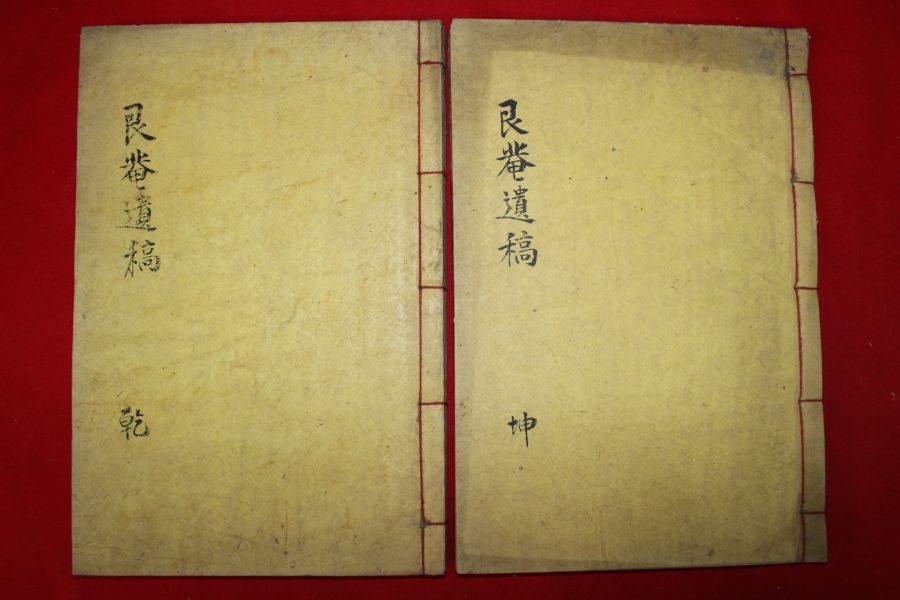 艮菴遺稿
乾
艮菴遺稿
坤